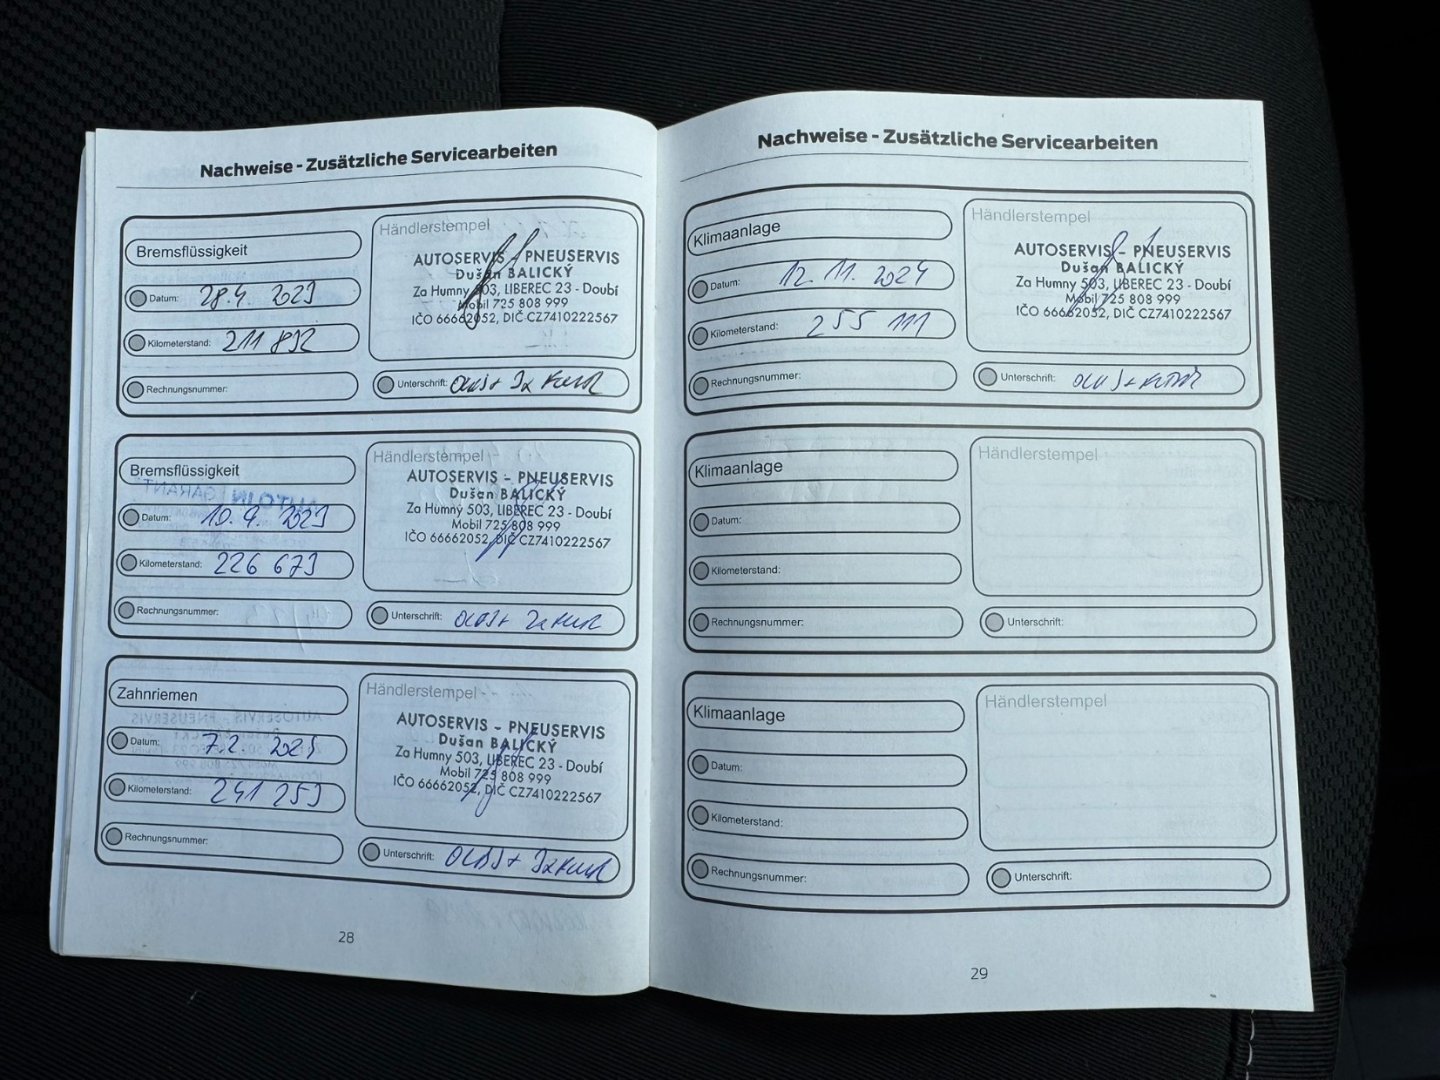 Nachweise - Zusätzliche Servicearbeiten
Bremsflüssigkeit
Datum: 28.4. 2023
Kilometerstand: 211 892
Rechnungsnummer:
Händlerstempel
AUTOSERVIS - PNEUSERVIS
Dušan BALICKÝ
Za Humny 503, LIBEREC 23 - Doubí
Mobil 725 808 999
IČO 66662052, DIČ CZ7410222567
Unterschrift:
Bremsflüssigkeit
Datum: 10. 9. 2023
Kilometerstand: 226 673
Rechnungsnummer:
Händlerstempel
AUTOSERVIS - PNEUSERVIS
Dušan BALICKÝ
Za Humny 503, LIBEREC 23 - Doubí
Mobil 725 808 999
IČO 66662052, DIČ CZ7410222567
Unterschrift:
Zahnriemen
Datum:
Kilometerstand: 241 253
Rechnungsnummer:
Händlerstempel
AUTOSERVIS - PNEUSERVIS
Dušan BALICKÝ
Za Humny 503, LIBEREC 23 - Doubí
Mobil 725 808 999
IČO 66662052, DIČ CZ7410222567
Unterschrift:
28
Nachweise - Zusätzliche Servicearbeiten
Klimaanlage
Datum: 12. 11. 2024
Kilometerstand: 255 111
Rechnungsnummer:
Händlerstempel
AUTOSERVIS - PNEUSERVIS
Dušan BALICKÝ
Za Humny 503, LIBEREC 23 - Doubí
Mobil 725 808 999
IČO 66662052, DIČ CZ7410222567
Unterschrift:
Klimaanlage
Datum:
Kilometerstand:
Rechnungsnummer:
Händlerstempel
Unterschrift:
Klimaanlage
Datum:
Kilometerstand:
Rechnungsnummer:
Händlerstempel
Unterschrift:
29